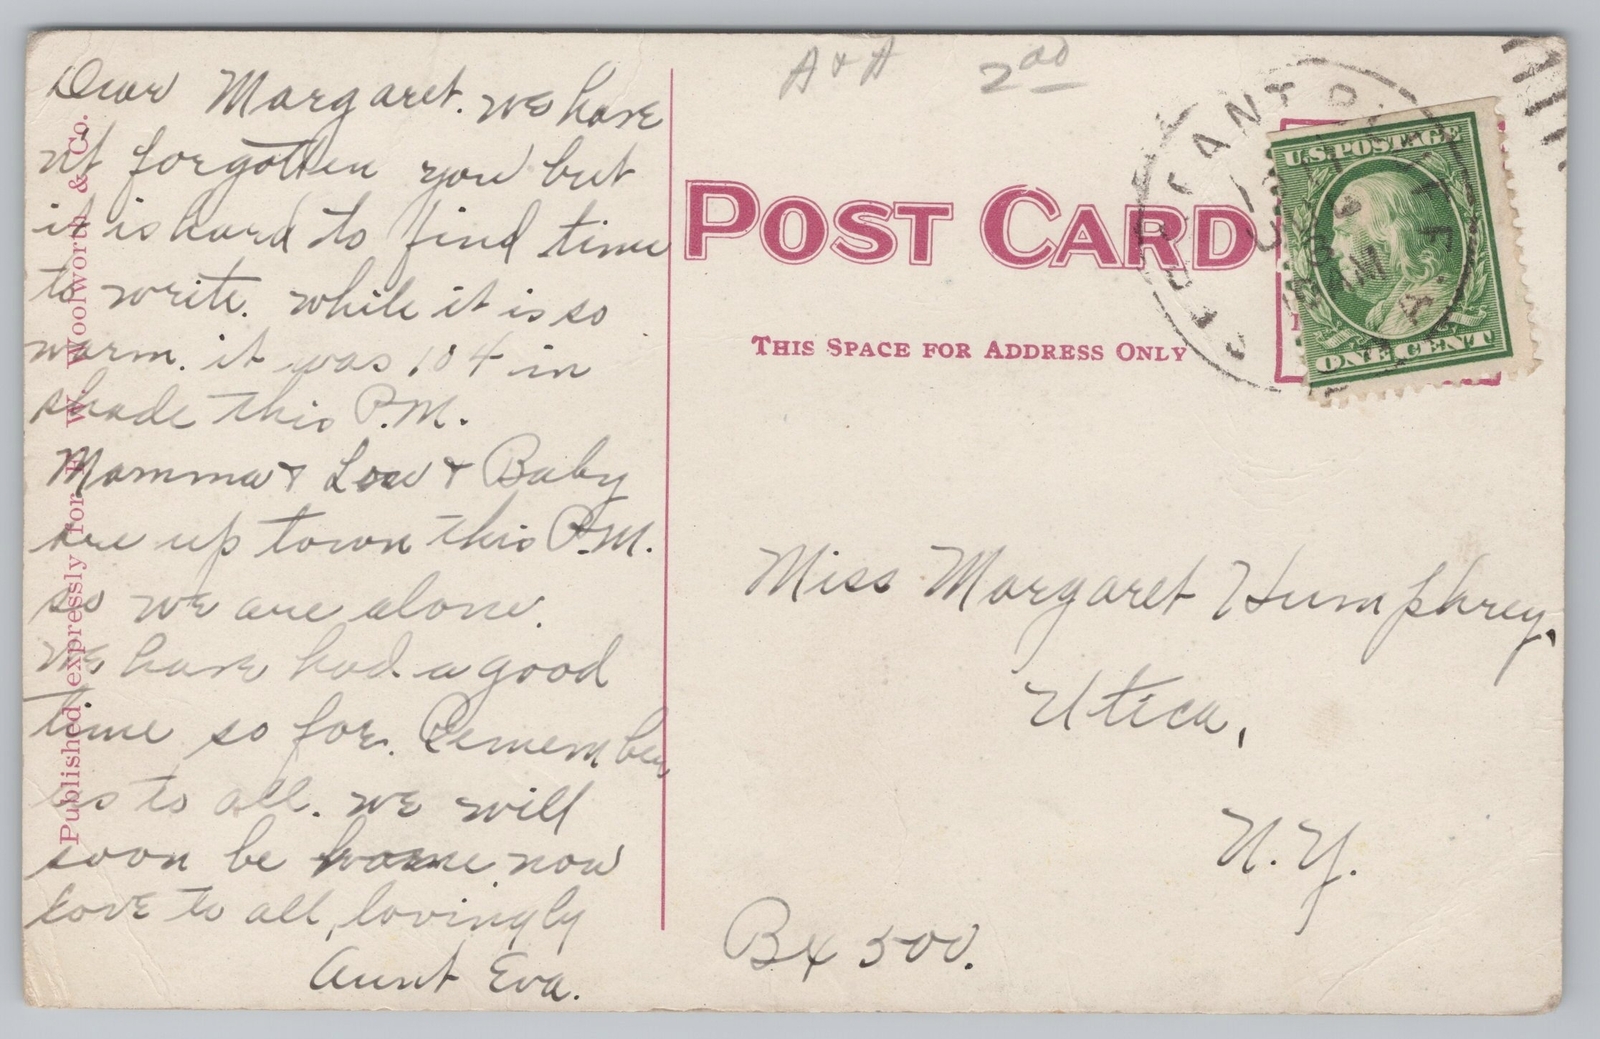 Dear Margaret. we have
nt forgotten you but
it is hard to find time
to write. while it is so
warm. it was 104 in
shade this P.M.
Mamma & Lou & Baby
are up town this P.M.
so we are alone.
We have had a good
time so far. Remember
us to all. we will
soon be home now
love to all, lovingly
Aunt Eva.
Published expressly for F. W. Woolworth & Co.
A & A 2 00
POST CARD
THIS SPACE FOR ADDRESS ONLY
U.S. POSTAGE
ONE CENT
Miss Margaret Humphrey.
Utica,
N.Y.
Bx 500.